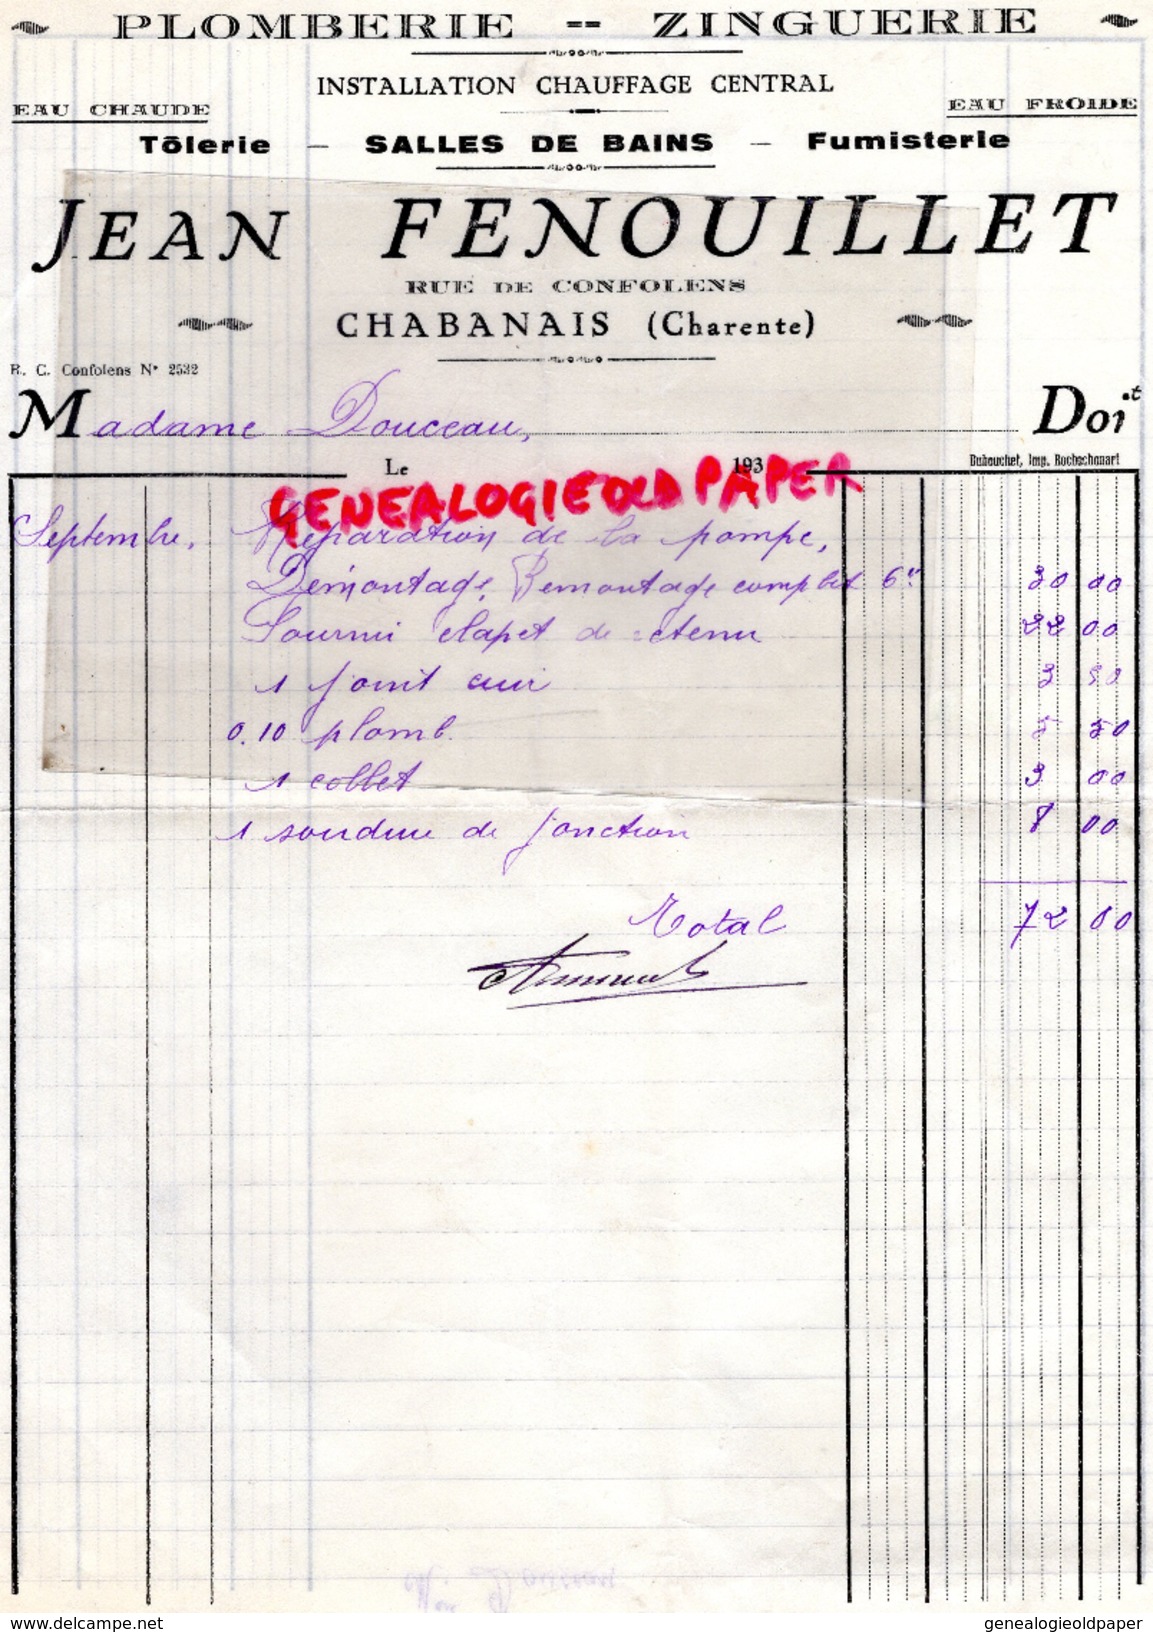 PLOMBERIE -- ZINGUERIE
INSTALLATION CHAUFFAGE CENTRAL
EAU CHAUDE EAU FROIDE
Tôlerie — SALLES DE BAINS — Fumisterie
JEAN FENOUILLET
RUE DE CONFOLENS
CHABANAIS (Charente)
R. C. Confolens N° 2532
Madame Douceau, Doit
Le 193
Dubouchet, Imp. Rochechouart
GENEALOGIE OLD PAPER
Septembre, Réparation de la pompe,
Démontage, Remontage complet 6h 30 00
Fourni clapet de retenu 22 00
1 joint cuir 3 50
0.10 plomb. 5 50
1 collet 3 00
1 soudure de jonction 8 00
Total 72 00
www.delcampe.net genealogieoldpaper